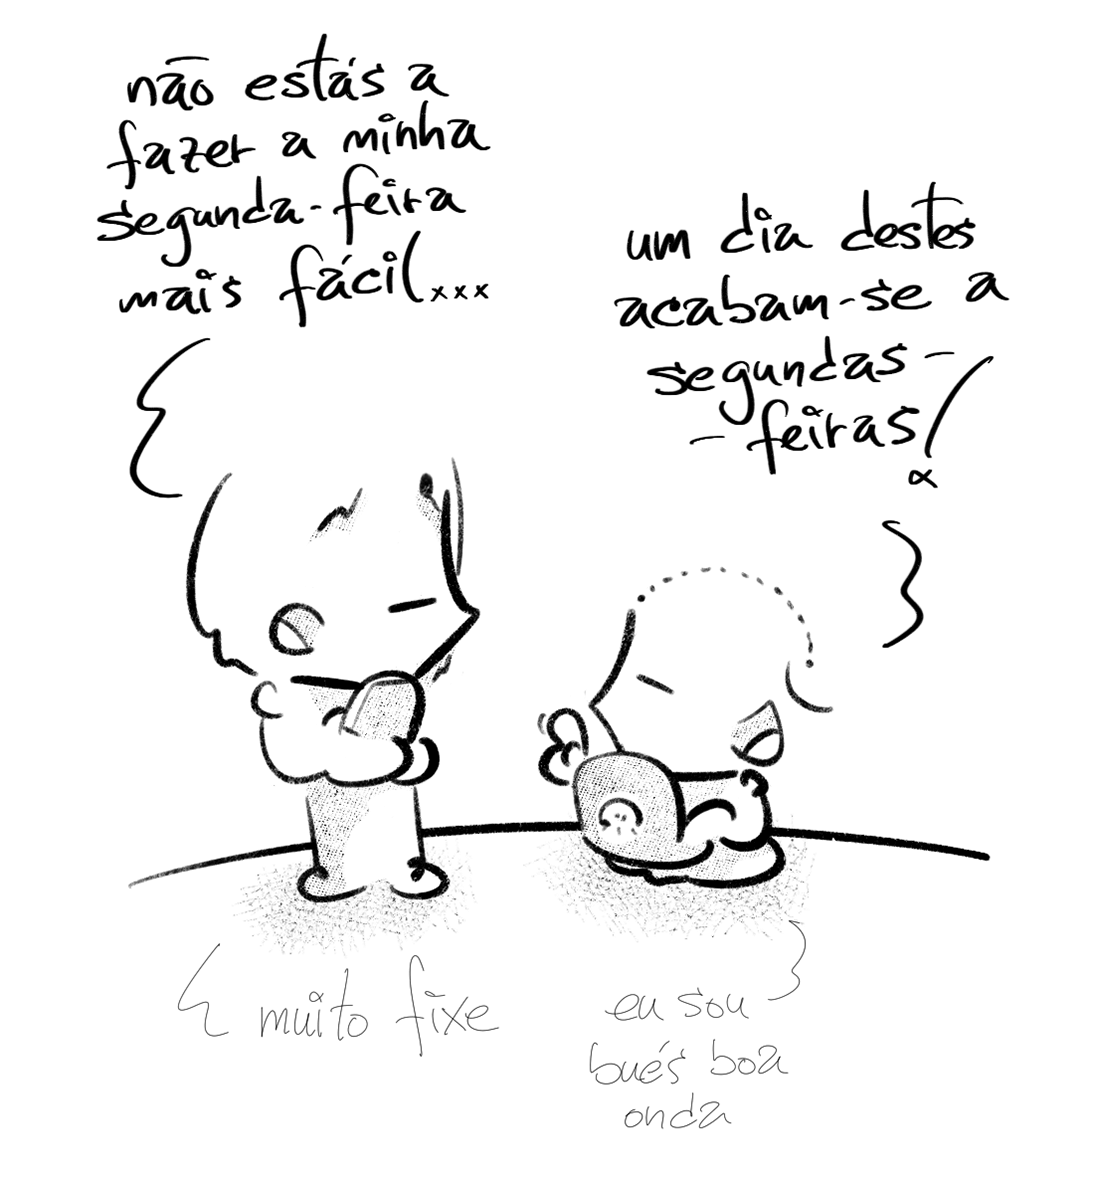 não estás a
fazer a minha
segunda-feira
mais fácil...
um dia destes
acabam-se a
segundas-
-feiras!
muito fixe
eu sou
bués boa
onda